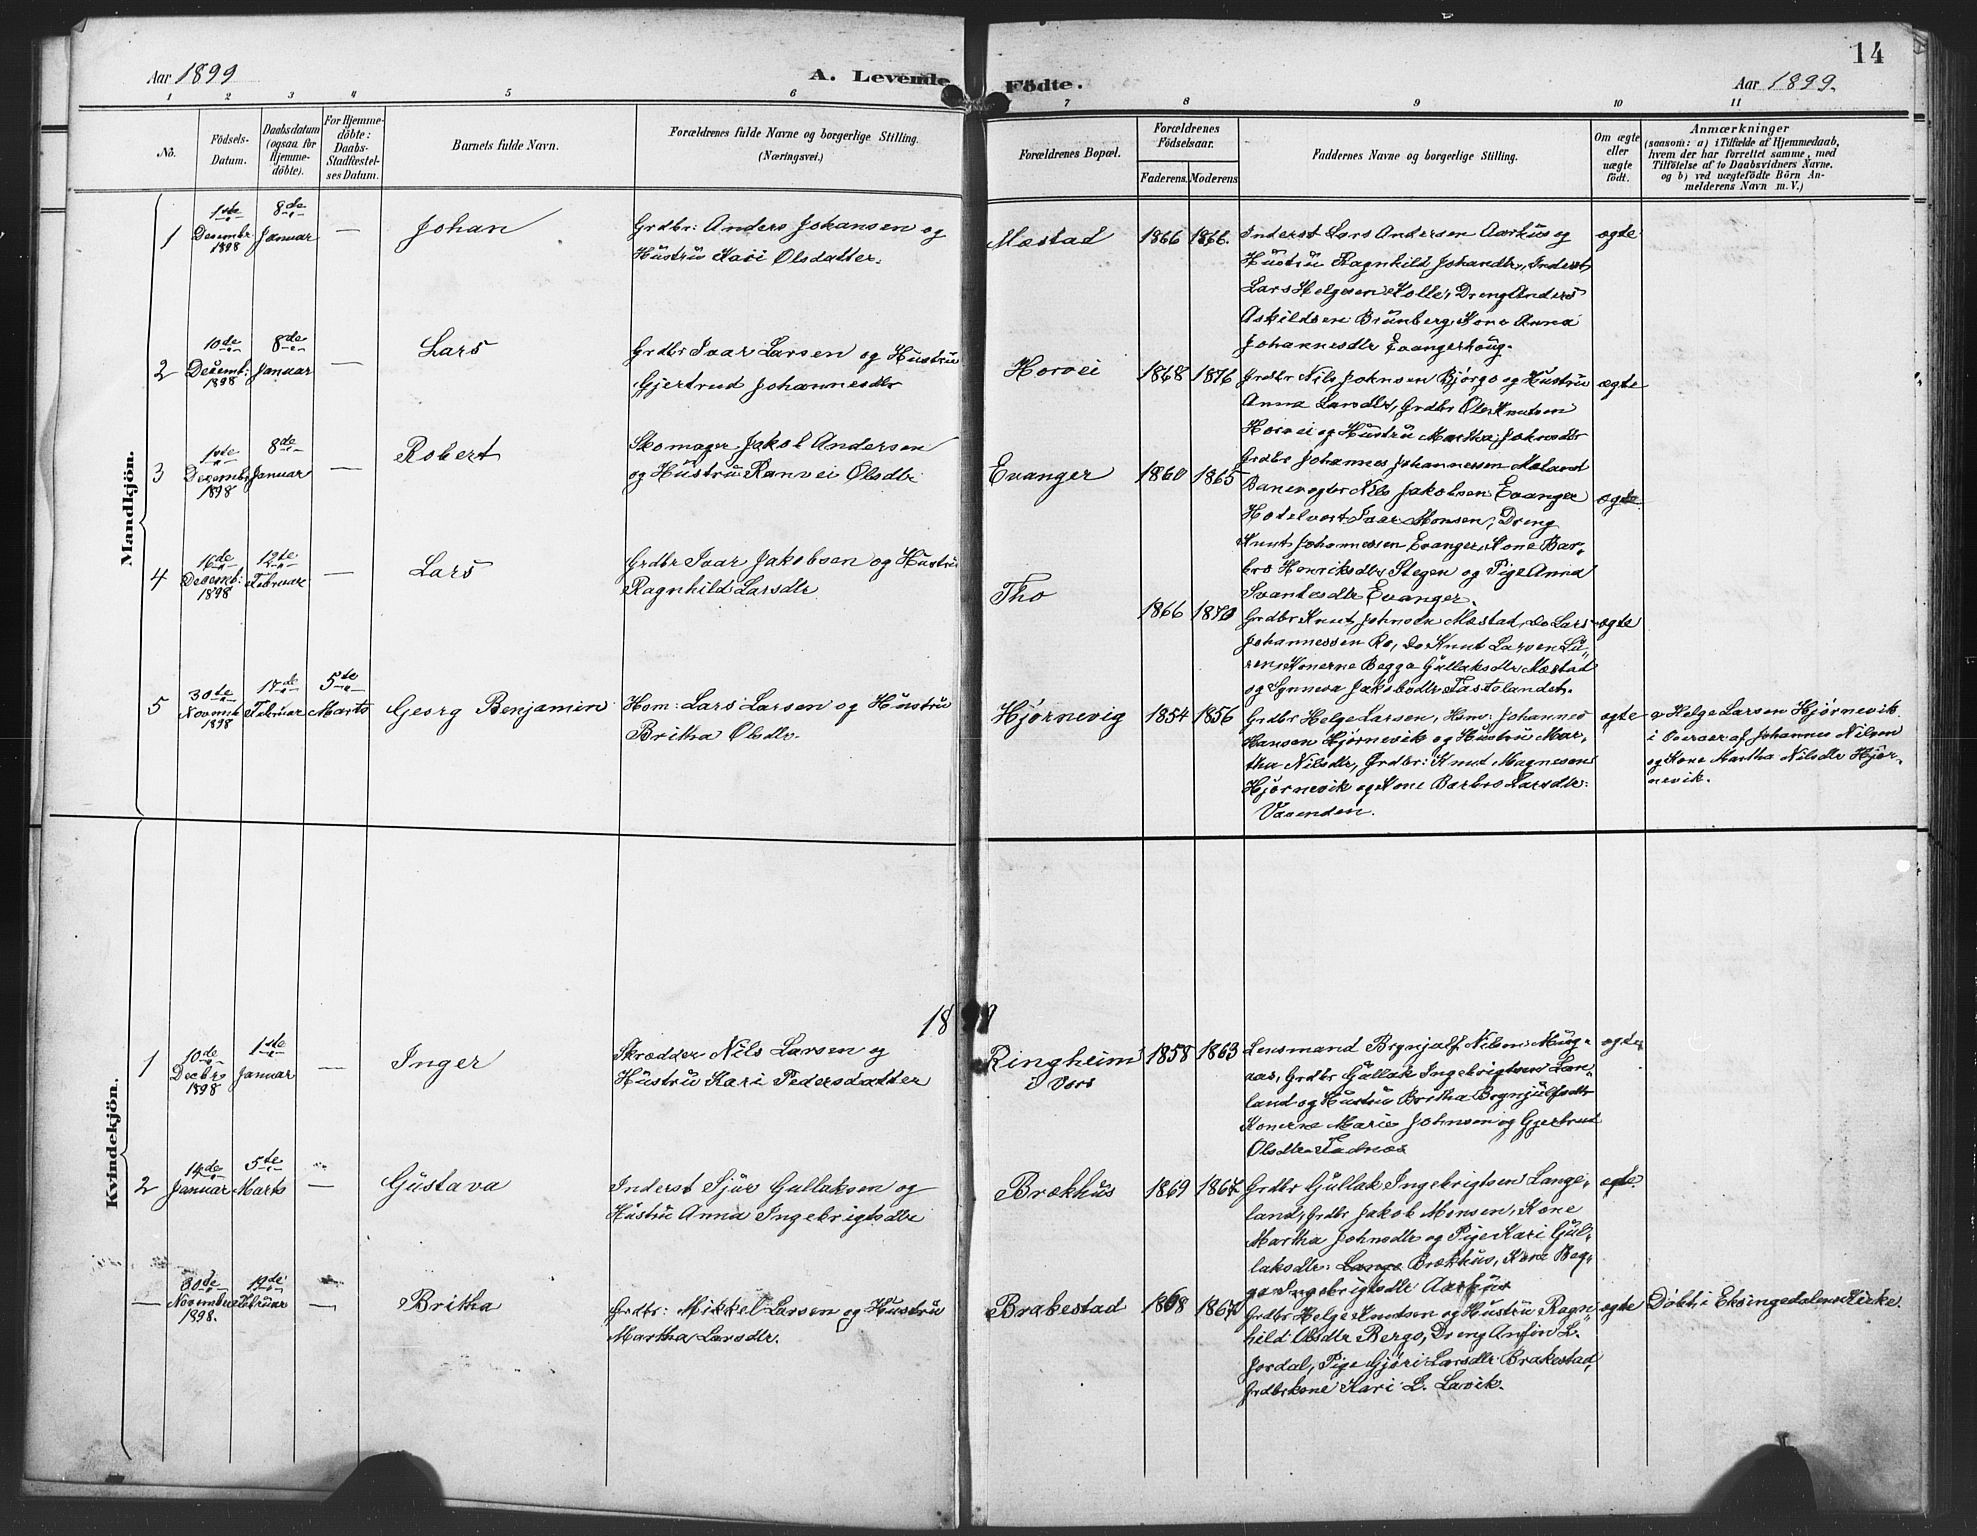 14
Aar 1899
A. Levende Födte.
Aar 1899.
1 2 3 4 5 6 7 8 9 10 11
No.
Födsels-
Datum.
Daabsdatum
(ogsaa for
Hjemme-
döbte).
For Hjemme-
döbte:
Daabs-
Stadfæstel-
ses Datum.
Barnets fulde Navn.
Forældrenes fulde Navne og borgerlige Stilling.
(Næringsvei.)
Forældrenes Bopæl.
Forældrenes
Födselsaar.
Faderens. Moderens.
Faddernes Navne og borgerlige Stilling.
Om ægte
eller
uægte
født.
Anmærkninger
(saasom: a) i Tilfælde af Hjemmedaab,
hvem der har forrettet samme, med
Tilföielse af to Daabsvidners Navne.
og b) ved uægtefödte Börn An-
melderens Navn m. V.)
Mandkjön.
1
1ste
Desembr.
1898
8de
Januar
—
Johan
Grdbr: Anders Johansen og
Hustru Kari Olsdatter.
Mæstad
1866
1866.
Inderst Lars Andersen Aarhus og
Hustru Ragnhild Johansdtr, Inderst
Lars Helgesen Kolle, Dreng Anders
Askildsen Brunberg, Kone Anna
Johannesdtr Evangerhoug.
ægte
2
10de
Desemb:
1898
8de
Januar
—
Lars
Grdbr Ivar Larsen og Hustru
Gjertrud Johannesdtr
Horvei
1868
1876
Grdbr Nils Johnsen Bjørgo og Hustru
Anna Larsdtr, Grdbr Ole Knutsen
Horvei og Hustru Martha Johnsdtr
ægte
3
1ste
Decembr
1898
8de
Januar
—
Robert
Skomager Jakob Andersen
og Hustru Ranvei Olsdtr
Evanger
1860
1865
Grdbr Johannes Johannessen Mæland
Banevogter Nils Jakobsen Evanger
Hotelvert Ivar Monsen, Dreng
Knut Johannessen Evanger, Kone Bar-
bro Henriksdtr Stegen og Pige Anna
Svantesdtr Evanger.
ægte
4
16de
Desemb:
1898
12te
Februar
—
Lars
Grdbr Ivar Jakobsen og Hustru
Ragnhild Larsdtr
Tho
1866
1870
Grdbr Knut Johnsen Mæstad, Do Lars
Johannessen Ro, Do Knut Larsen Lü-
ren, Konerne Begga Gullaksdtr Mæstad
og Synneva Jakobsdtr Fastolandet.
ægte
5
30te
Novmb
1898
17de
Februar
5te
Marts
Georg Benjamin
Hsm: Lars Larsen og Hustru
Britha Olsdtr.
Hjørnevig
1854
1856
Grdbr Helge Larsen, Hsm: Johannes
Hansen Hjørnevik og Hustru Mar-
tha Nilsdtr, Grdbr: Knut Magnesen
Hjørnevik og Kone Barbro Larsdtr:
Vaaenden.
ægte
Helge Larsen Hjørnevik
i Overvær af Johannes Nilsen
og Kone Martha Nilsdtr Hjør-
nevik.
18 99
Kvindekjön.
1
10de
Decbr
1898
1ste
Januar
—
Inger
Skrædder Nils Larsen og
Hustru Kari Pedersdatter
Ringheim
i Vors
1858
1863
Lensmand Brynjulf Nilsen Müg-
aas, Grdbr Gullak Ingebrigtsen Lan-
land og Hustru Britha Brynjulfsdtr
Konerne Marie Johnsen og Gjertrud
Olsdtr Fadnæs
ægte
2
14de
Januar
5te
Marts
—
Gustava
Inderst Sjur Gullaksen og
Hustru Anna Ingebrigtsdtr
Brækhus
1869
1867
Grdbr Gullak Ingebrigtsen Lange-
land, Grdbr Jakob Monsen, Kone
Martha Johnsdtr og Pige Kari Gul-
laksdtr: Lange Brækhus, Kone Beg-
ga Ingebrigtsdtr Aarhus
ægte
—
30de
November
1898.
19de
Februar
—
Britha
Grdbr: Mikkel Larsen og Hustru
Martha Larsdtr.
Brakestad
1868
1867
Grdbr Helge Knudsen og Hustru Ragn-
hild Olsdtr Bergo, Dreng Anfin L.
Jordal, Pige Gjøri Larsdtr Brakestad,
Grdbrkone Kari L. Lavik.
ægte
Døbt i Eksingedalens Kirke.